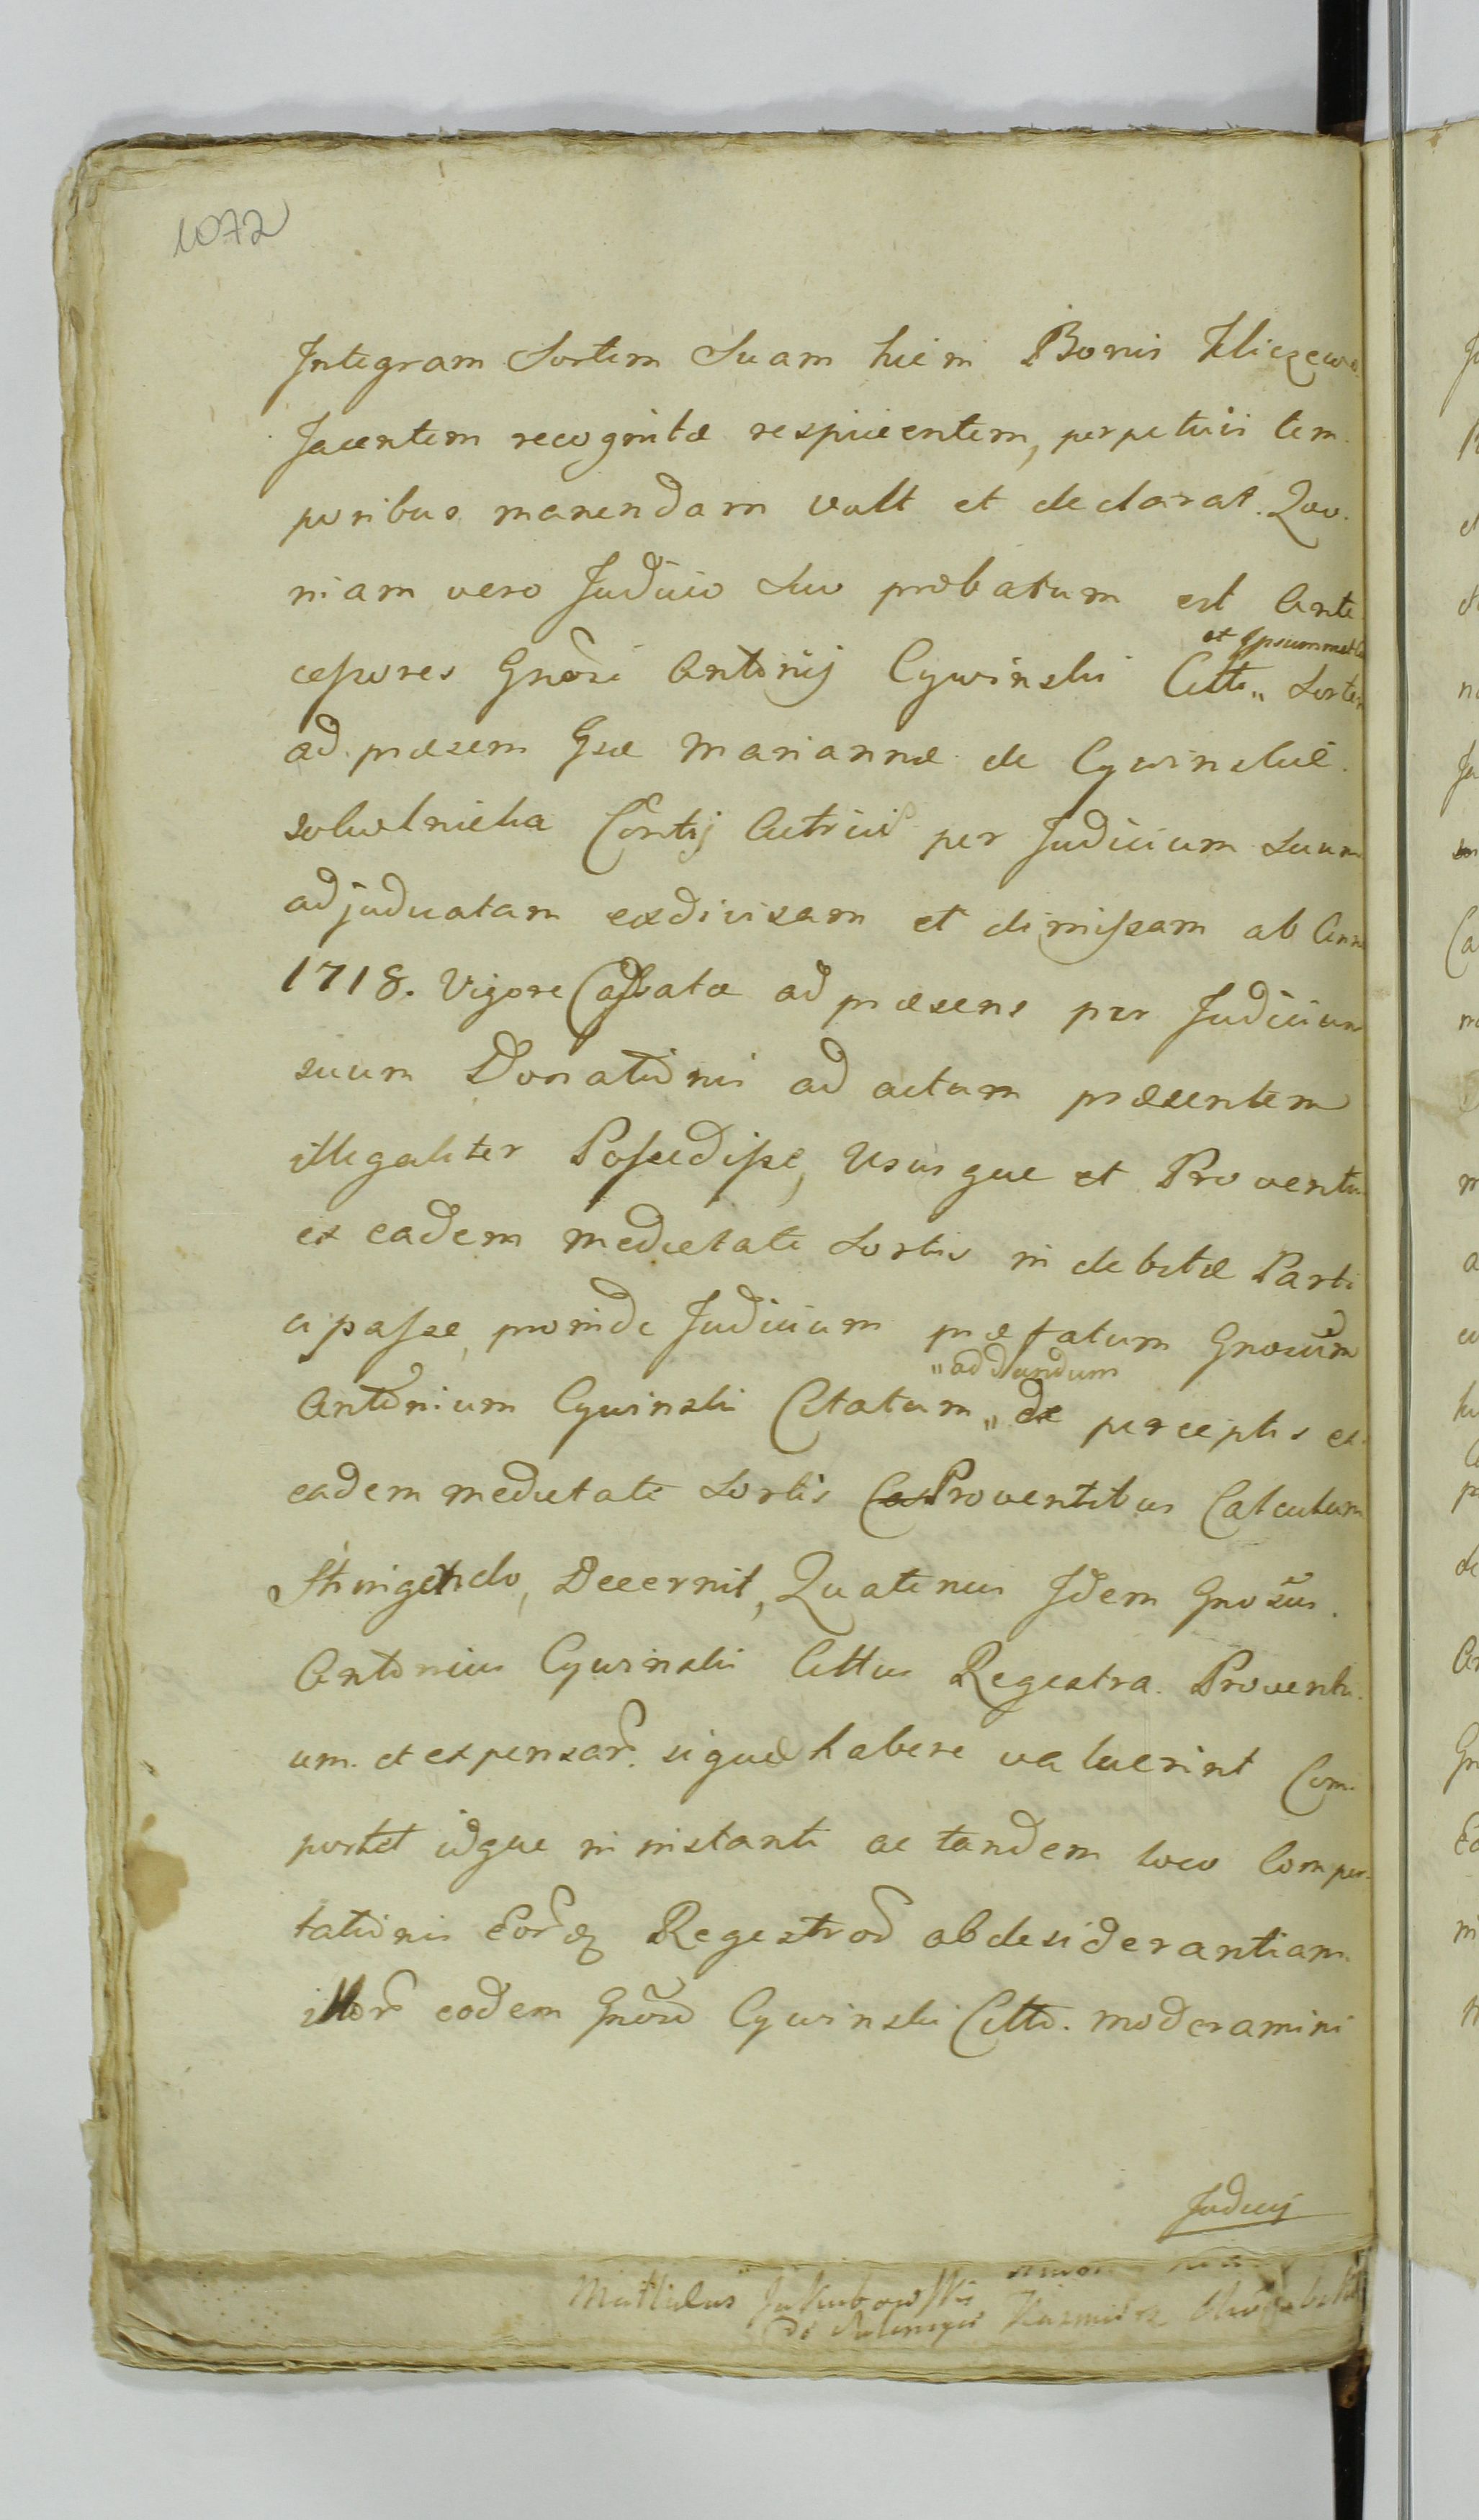 1072
Integram Sortem Suam hic in Bonis Kliczewo
Jacentem recognitæ respicientem, perpetuis tem
poribus manendam vult et declarat. Quo
niam vero Judicio Suo probatum est Ante
et Ipsummet
cessores Gnosi Antonij Cywinski Citti „ Sortem
ad præsens Gsæ Mariannæ de Cywinskie
Sokolnicka Conthj Actrici per Judicium Suum
adjudicatam exdivisam et dimissam ab Anno
1718. Vigore Cassatæ ad præsens per Judicium
suum Donationis ad actum præsentem
illegaliter Possedisse, Ususque et Proventus
ex eadem medietate Sortis indebitæ Parti
cipasse, proinde Judicium præfatum Gnosum
„ ad dandum
Antonium Cywinski Citatum „ de perceptis ex
eadem medietate Sortis Proventibus Calculum
Stringendo, Decernit, Quatenus Idem Gnosus
Antonius Cywinski Cittus Regestra Proventu
um et expensar. si quæ habere valuerint Com
portet idque in instanti ac tandem loco Compor
tationis Eorq Regestror ob desiderantiam
illor eodem Gnoso Cywinski Citto. moderamini
Judicij
Mathias Jakubowski